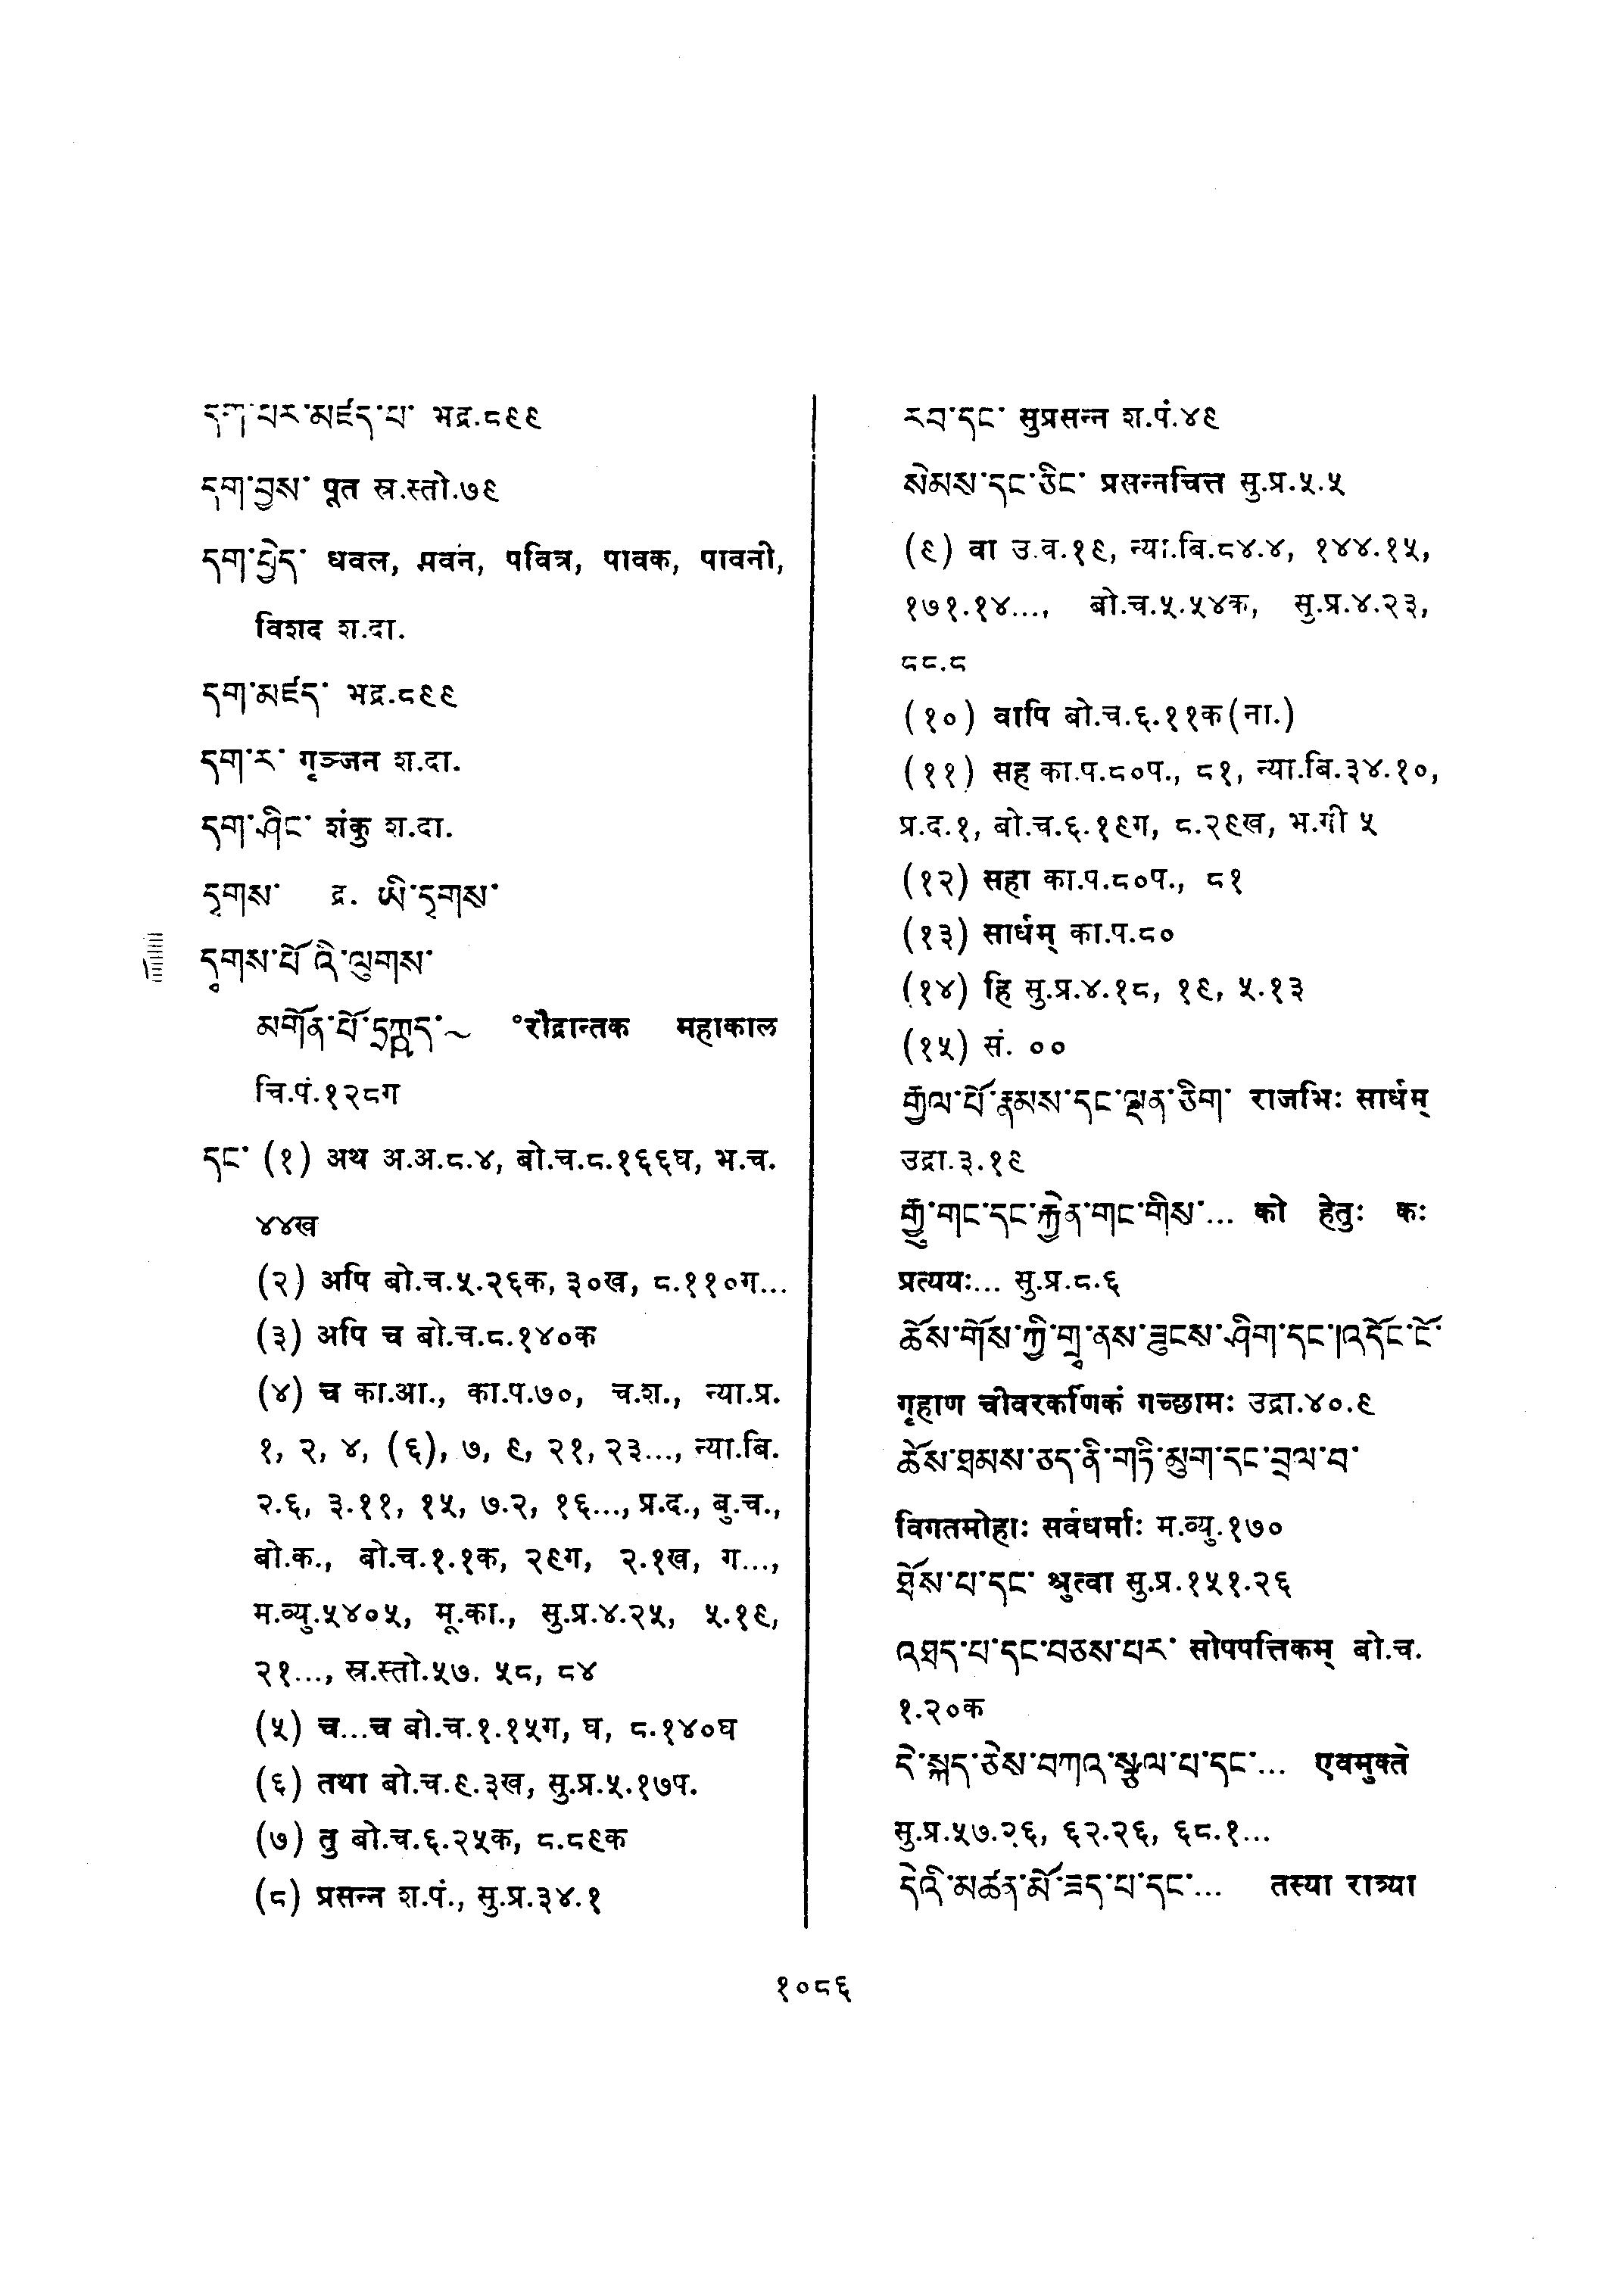 དག་པར་མཛད་པ་ भद्र.८९९
དག་བྱས་ पूत स्र.स्तो.७९
དག་བྱེད་ धवल, पवन, पवित्र, पावक, पावनी,
विशद श.दा.
དག་མཛད་ भद्र.८९९
དག་ར་ गृञ्जन श.दा.
དག་ཤིང་ शंकु श.दा.
དྭགས་ द्र. ཨི་དྭགས་
དྭགས་པོ་འི་ལུགས་
མགོན་པོ་དྲཀྵད་~ °रौद्रान्तक महाकाल
चि.पं.१२८ग
དང་ (१) अथ अ.अ.८.४, बो.च.८.१६६घ, भ.च.
४४ख
(२) अपि बो.च.५.२६क, ३०ख, ८.११०ग...
(३) अपि च बो.च.८.१४०क
(४) च का.आ., का.प.७०, च.श., न्या.प्र.
१, २, ४, (६), ७, ९, २१, २३..., न्या.बि.
२.६, ३.११, १५, ७.२, १६..., प्र.द., बु.च.,
बो.क., बो.च.१.१क, २९ग, २.१ख, ग...,
म.व्यु.५४०५, मू.का., सु.प्र.४.२५, ५.१९,
२१..., स्र.स्तो.५७. ५८, ८४
(५) च...च बो.च.१.१५ग, घ, ८.१४०घ
(६) तथा बो.च.९.३ख, सु.प्र.५.१७प.
(७) तु बो.च.६.२५क, ८.८९क
(८) प्रसन्न श.पं., सु.प्र.३४.१
རབ་དང་ सुप्रसन्न श.पं.४९
སེམས་དང་ཅིང་ प्रसन्नचित्त सु.प्र.५.५
(९) वा उ.व.१९, न्या.बि.८४.४, १४४.१५,
१७१.१४..., बो.च.५.५४क, सु.प्र.४.२३,
८८.८
(१०) वापि बो.च.६.११क(ना.)
(११) सह का.प.८०प., ८१, न्या.बि.३४.१०,
प्र.द.१, बो.च.६.१९ग, ८.२९ख, भ.गी ५
(१२) सहा का.प.८०प., ८१
(१३) सार्धम् का.प.८०
(१४) हि सु.प्र.४.१८, १९, ५.१३
(१५) सं. ००
རྒྱལ་པོ་རྣམས་དང་ལྡན་ཅིག་ राजभिः सार्धम्
उद्रा.३.१९
རྒྱུ་གང་དང་རྐྱེན་གང་གིས་... को हेतुः कः
प्रत्ययः... सु.प्र.८.६
ཆོས་གོས་ཀྱི་གྲྭ་ནས་ཟུངས་ཤིག་དང་།འདོང་ངོ་
गृहाण चीवरकर्णिकं गच्छामः उद्रा.४०.९
ཆོས་ཐམས་ཅད་ནི་གཏི་མུག་དང་བྲལ་བ་
विगतमोहाः सर्वधर्माः म.व्यु.१७०
ཐོས་པ་དང་ श्रुत्वा सु.प्र.१५१.२६
འཐད་པ་དང་བཅས་པར་ सोपपत्तिकम् बो.च.
१.२०क
དེ་སྐད་ཅེས་བཀའ་སྩལ་པ་དང་... एवमुक्ते
सु.प्र.५७.२६, ६२.२६, ६८.१...
དེའི་མཚན་མོ་ཟད་པ་དང་... तस्या रात्र्या
१०८६